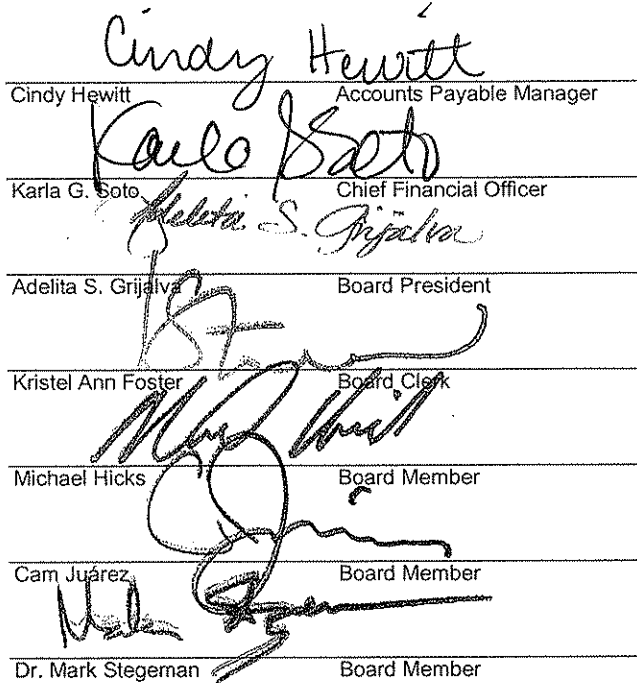 Cindy Hewitt
Cindy Hewitt Accounts Payable Manager
Karla G. Soto Chief Financial Officer
Adelita S. Grijalva
Adelita S. Grijalva Board President
Kristel Ann Foster Board Clerk
Michael Hicks Board Member
Cam Juárez Board Member
Dr. Mark Stegeman Board Member